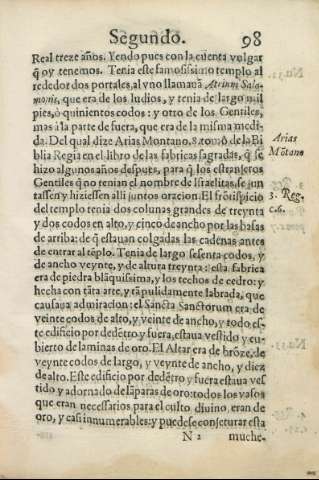 Segundo. 98
Real treze años. Yendo pues con la cuenta vulgar
q̃ oy tenemos. Tenia este famosissimo templo al
rededor dos portales, al vno llamauã Atrium Salo-
monis, que era de los Iudios, y tenia de largo mil
pies, ò quinientos codos: y otro de los Gentiles,
mas à la parte de fuera, que era de la misma medi-
da. Del qual dize Arias Montano, 8. tomo de la Bi
blia Regia en el libro de las fabricas sagradas, q̃ se
hizo algunos años despues, para q̃ los estranjeros
Gentiles q̃ no tenian el nombre de Israelitas, se jun
tassen y hiziessen alli juntos oracion. El frõtispicio
del templo tenia dos colunas grandes de treynta
y dos codos en alto, y cinco de ancho por las basas
de arriba: de q̃ estauan colgadas las cadenas antes
de entrar al tẽplo. Tenia de largo sesenta codos, y
de ancho veynte, y de altura treynta: esta fabrica
era de piedra blãquissima, y los techos de cedro: y
hecha con tãta arte, y tã pulidamente labrada, que
causaua admiracion: el Sancta Sanctorum era de
veinte codos de alto, y veinte de ancho, y todo es-
te edificio por dedẽtro y fuera, estaua vestido y cu-
bierto de laminas de oro. El Altar era de brõze, de
veynte codos de largo, y veynte de ancho, y diez
de alto. Este edificio por dedẽtro y fuera estaua ves
tido y adornado de lãparas de oro: todos los vasos
que eran necessarios para el culto diuino, eran de
oro, y casi innumerables: y puedese conjeturar esta
N 2 muche-
Arias
Mõtano
3. Reg.
c.6.